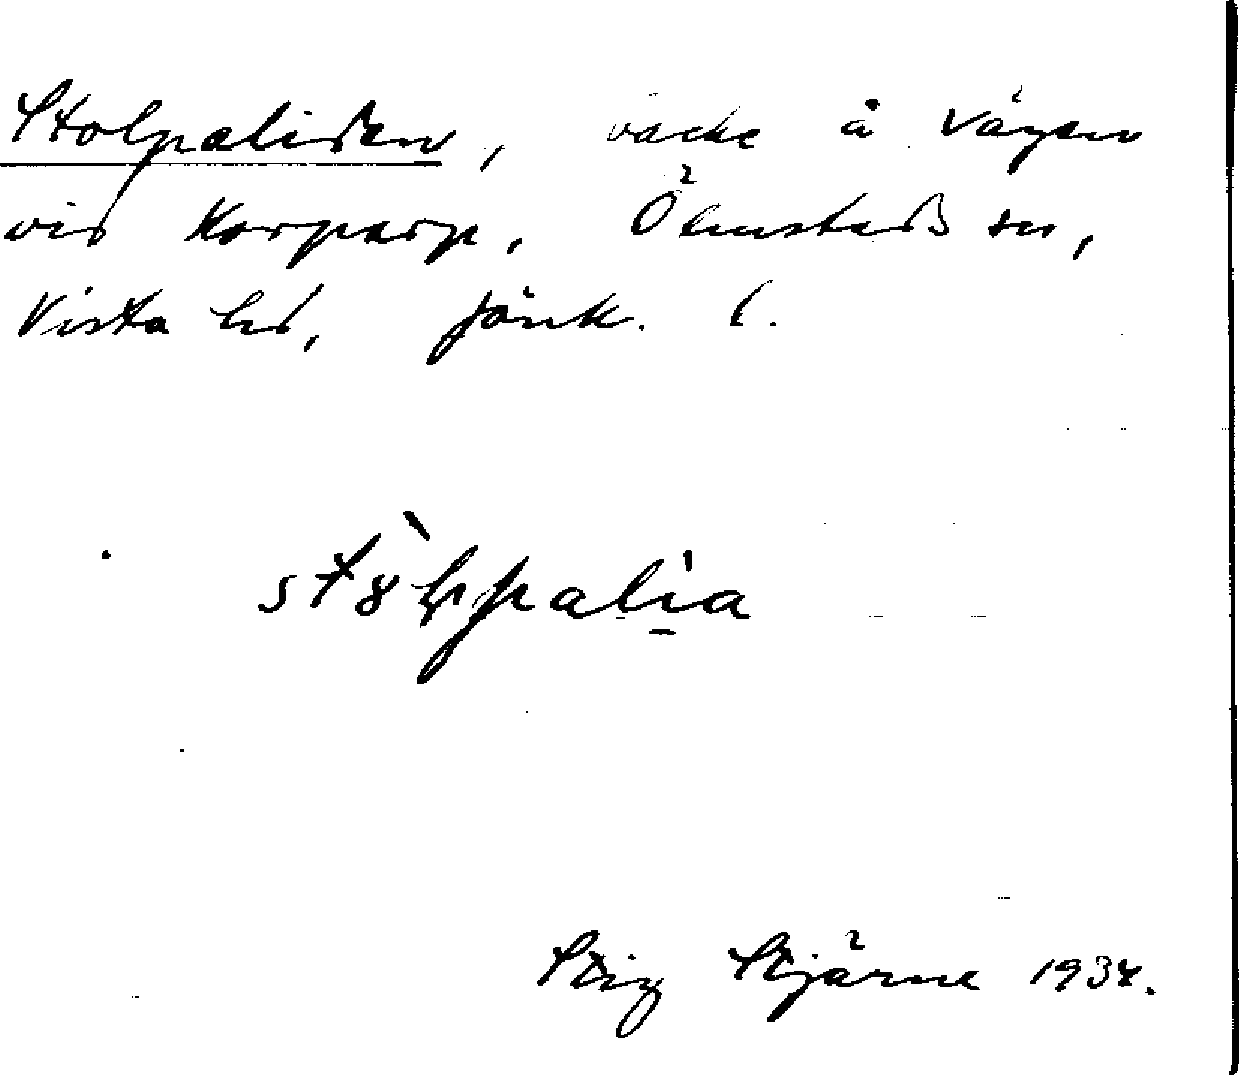 Stolpaliden, backe å vägen
vid Korparp, Ölmstads sn,
Vista hd, Jönk. l.
Stig Stjärne 1934.